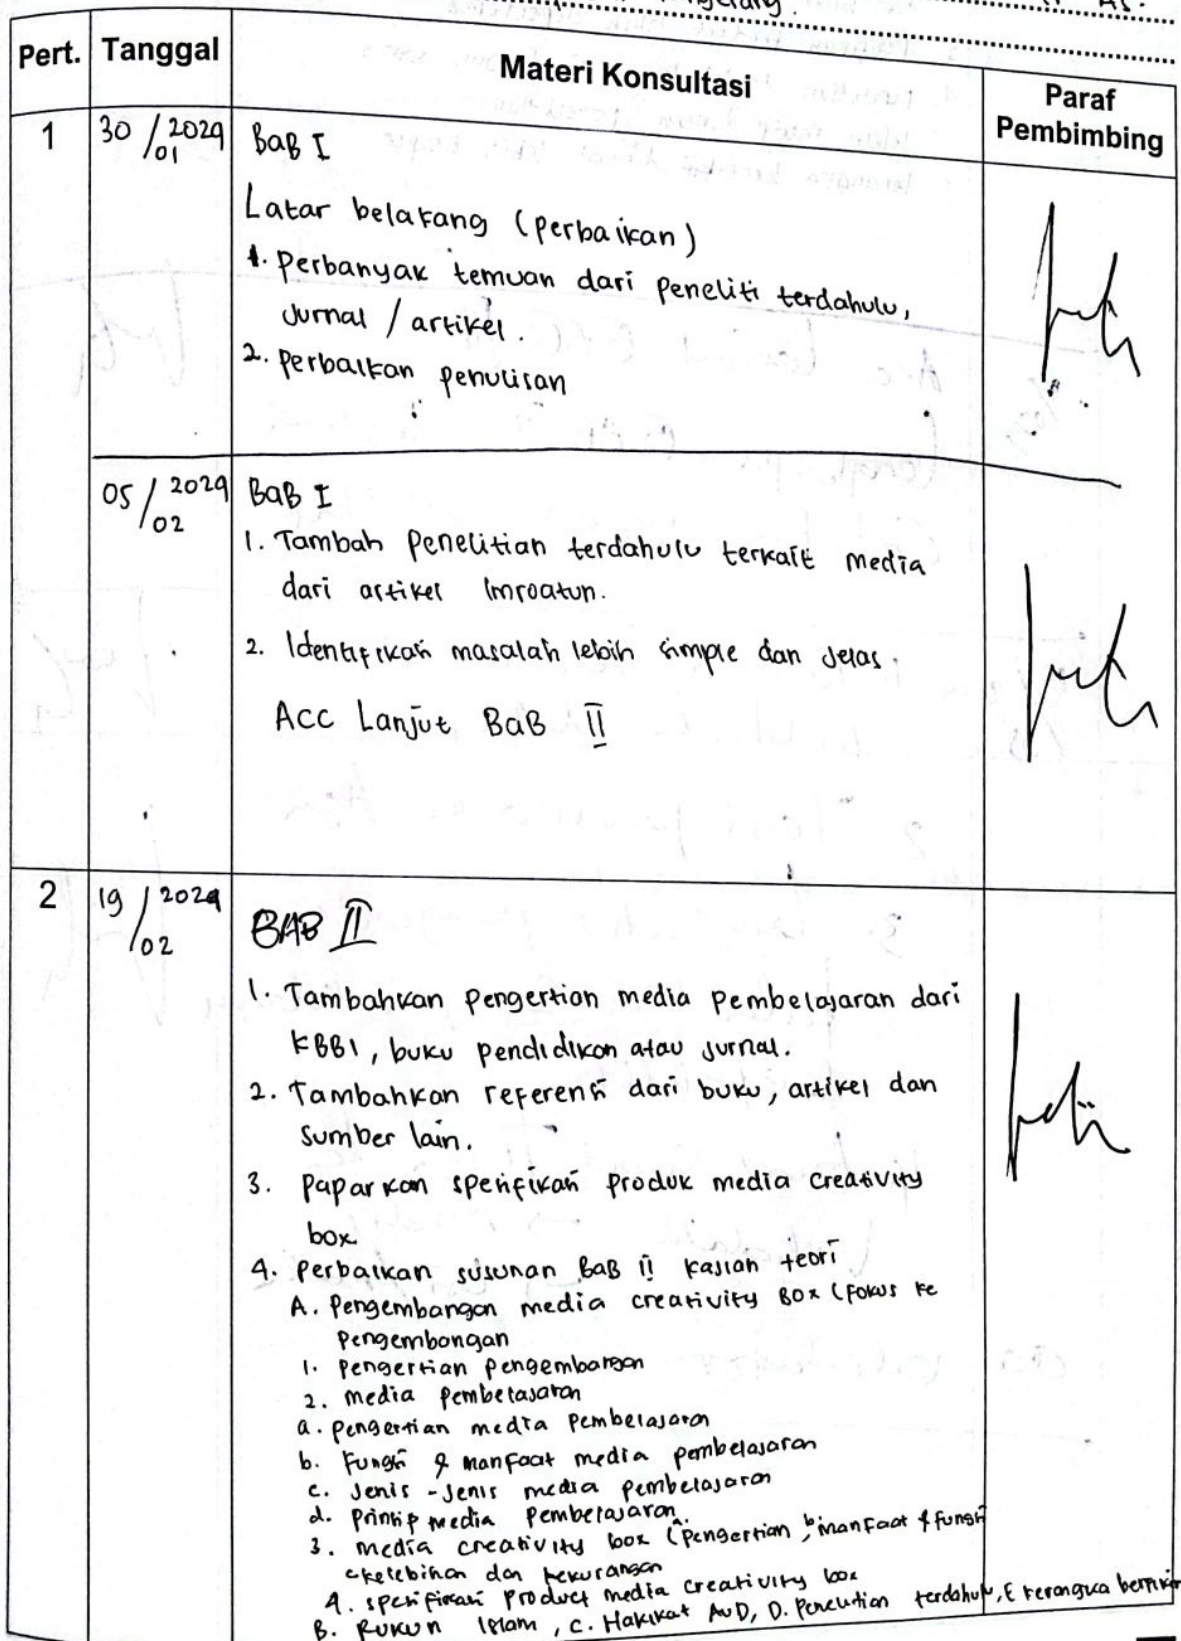 Pert. Tanggal Materi Konsultasi Paraf Pembimbing
1 30/01 2024 BaB I
Latar belakang (perbaikan)
1. perbanyak temuan dari peneliti terdahulu,
Jurnal / artikel.
2. perbaikan penulisan
05/02 2024 BaB I
1. Tambah penelitian terdahulu terkait media
dari artikel Imroatun.
2. Identifikasi masalah lebih simple dan jelas.
ACC Lanjut BaB II
2 19/02 2024
BAB II
1. Tambahkan pengertian media pembelajaran dari
KBBI, buku pendidikan atau jurnal.
2. Tambahkan referensi dari buku, artikel dan
sumber lain.
3. Paparkan spesifikasi produk media creativity
box
4. Perbaikan susunan BaB II kajian teori
A. Pengembangan media creativity Box (fokus ke
pengembangan
1. pengertian pengembangan
2. media pembelajaran
a. pengertian media pembelajaran
b. Fungsi & manfaat media pembelajaran
c. Jenis-jenis media pembelajaran
d. Prinsip media pembelajaran.
3. media creativity box (a. pengertian, b. manfaat & fungsi
c kelebihan dan kekurangan
4. spesifikasi product media creativity box
B. Rukun Islam, C. Hakikat AUD, D. Penelitian terdahulu, E kerangka berpikir